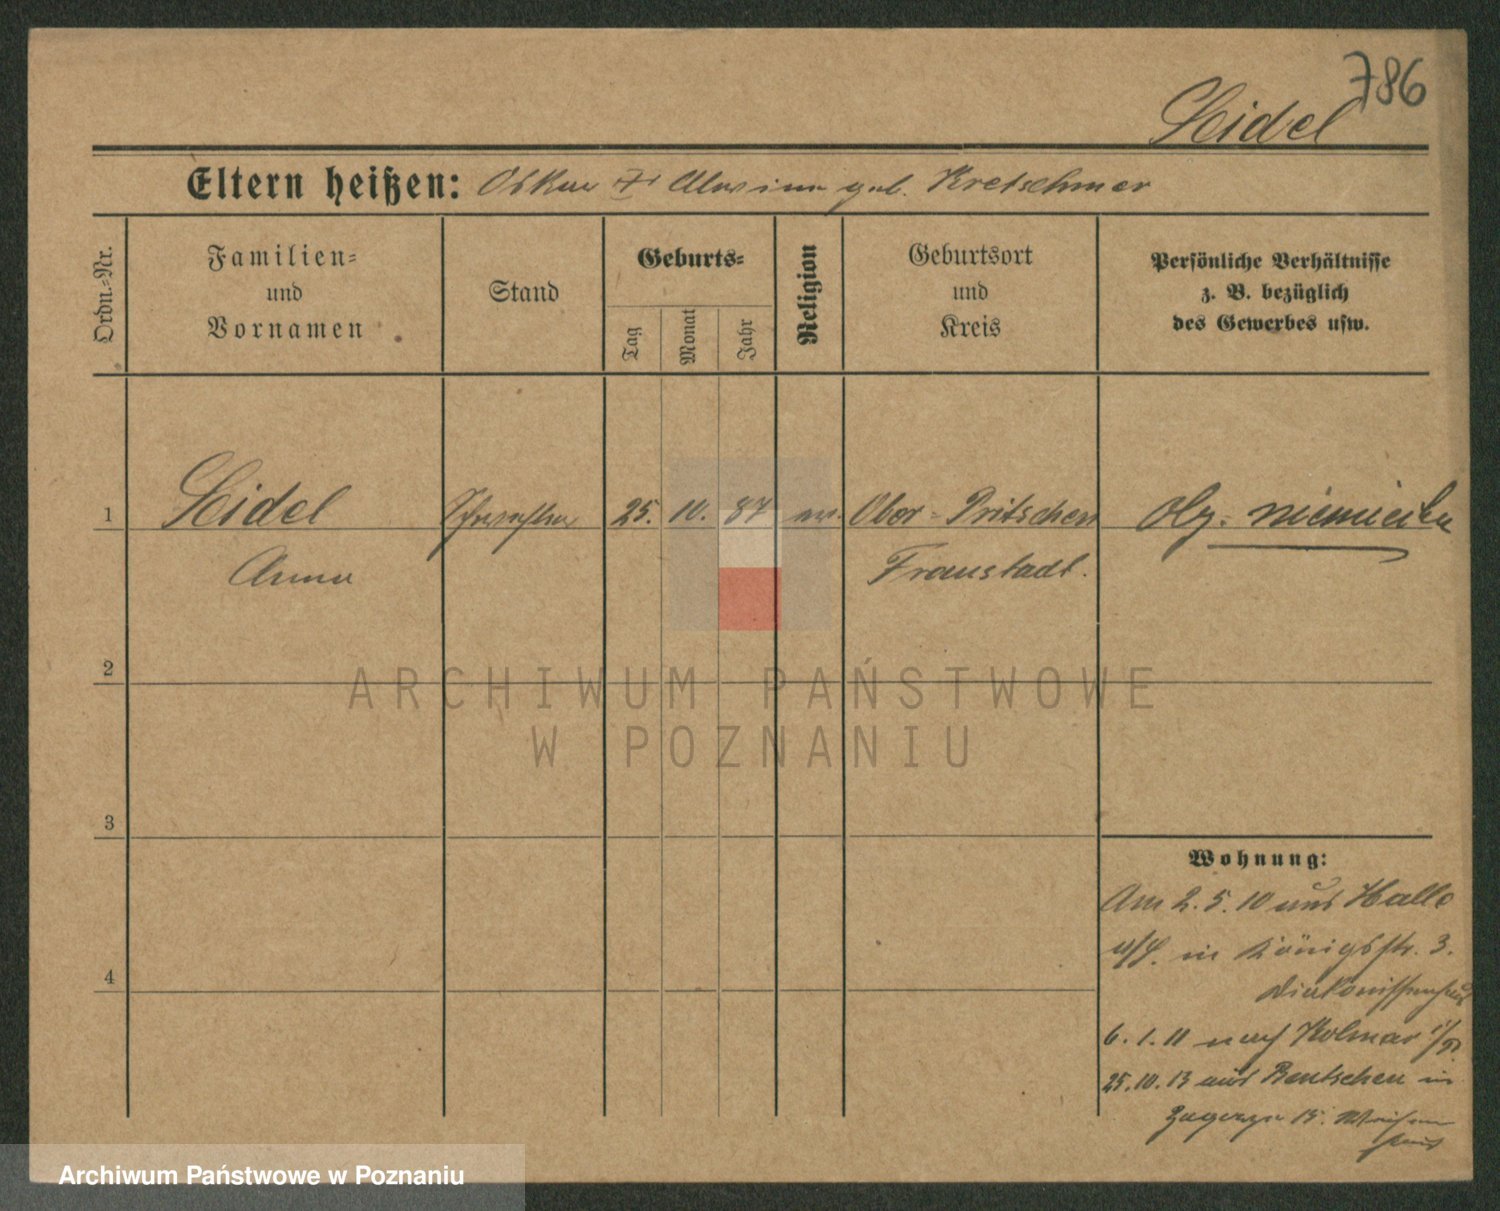 786
Seidel
Eltern heißen: Oskar u. Alwine geb. Kretschmer
Ordn.-Nr.
Familien-
und
Vornamen
Stand
Geburts-
Tag
Monat
Jahr
Religion
Geburtsort
und
Kreis
Persönliche Verhältnisse
z. B. bezüglich
des Gewerbes usw.
1 Seidel 25. 10. 87 ev. Ober-Pritschen Ob. niemiecka
Anna Fraustadt.
2
ARCHIWUM PAŃSTWOWE
W POZNANIU
3
Wohnung:
Am 2.5.10 aus Halle
a/S. in Königsstr. 3.
Diakonissenhaus
4
6.1.11 nach Kolmar i/P.
25.10.13 aus Bentschen in
15. Waisen
haus
Archiwum Państwowe w Poznaniu